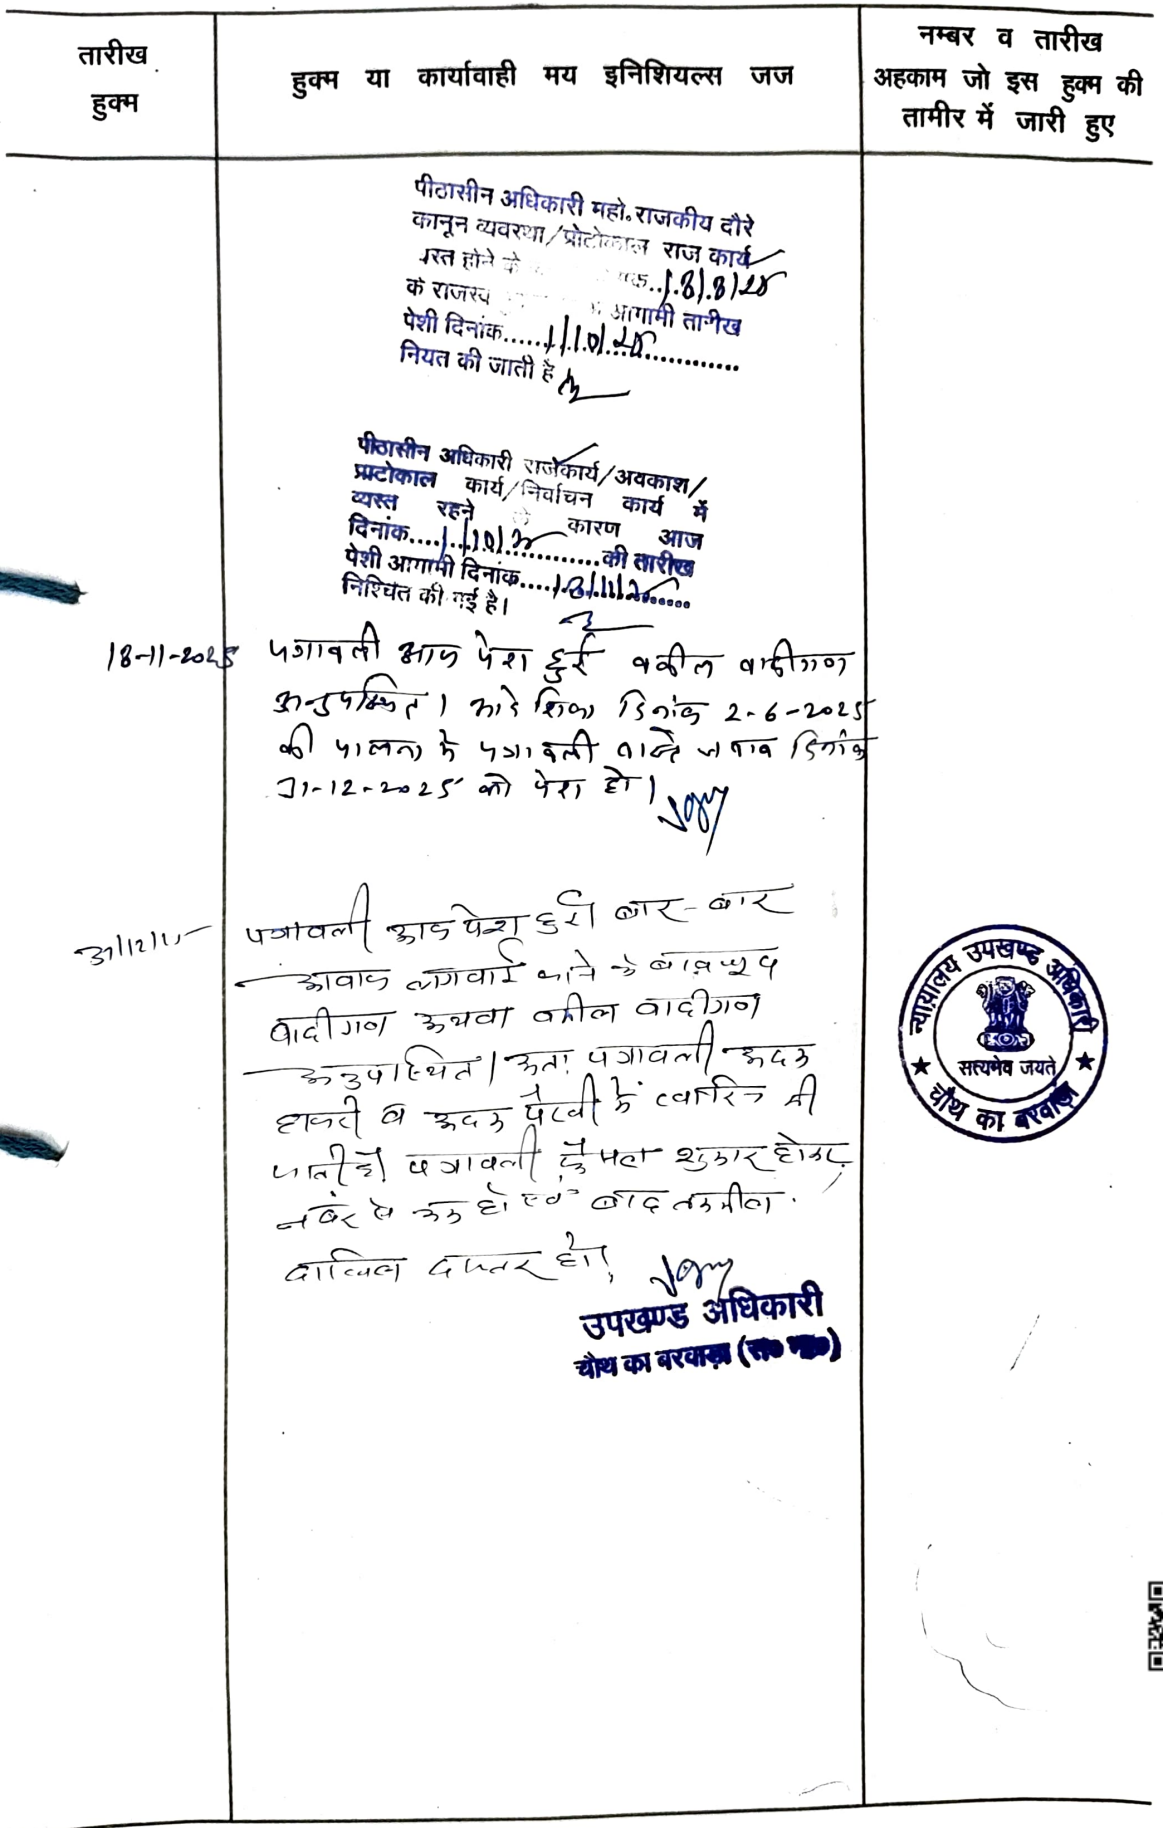 तारीख
हुक्म
हुक्म या कार्यावाही मय इनिशियल्स जज
नम्बर व तारीख
अहकाम जो इस हुक्म की
तामीर में जारी हुए
पीठासीन अधिकारी महो. राजकीय दौरे
कानून व्यवस्था/प्रोटोकाल राज कार्य
होने के 18/8/25
के राजस्व आगामी तारीख
पेशी दिनांक......1/10/25..............
नियत की जाती है
पीठासीन अधिकारी राजकार्य/अवकाश/
प्राटोकाल कार्य/निर्वाचन कार्य में
व्यस्त रहने के कारण आज
दिनांक....1/10/25.............की तारीख
पेशी आगामी दिनांक....18/11/25......
निश्चित की गई है।
18-11-2025 पत्रावली आज पेश हुई वकील वादीगण
अनुपस्थित। आदेशिका दिनांक 2-6-2025
की पालना के पत्रावली वास्ते जवाब दिनांक
31-12-2025 को पेश हो।
पत्रावली आज पेश हुई। बार-बार
आवाज लगवाई जाने के बावजूद
वादीगण अथवा वकील वादीगण
अनुपस्थित। अतः पत्रावली अदम
हाजरी व अदम पैरवी में खारिज की
जाती है। पत्रावली फैसल शुमार होकर
नंबर से कम हो एवं बाद तकमील
दाखिल दफ्तर हो।
उपखण्ड अधिकारी
चौथ का बरवाड़ा
न्यायालय उपखण्ड अधिकारी
सत्यमेव जयते
चौथ का बरवाड़ा